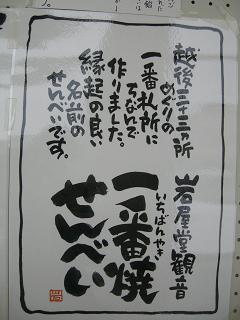 越後三十三ヶ所
めぐりの
一番札所に
ちなんで
作りました。
縁起の良い
名前の
せんべいです。
岩屋堂観音
いちばんやき
一番焼
せんべい